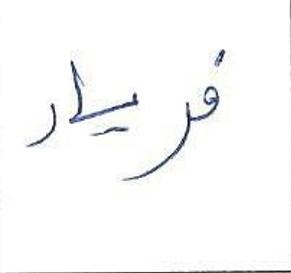 فریار